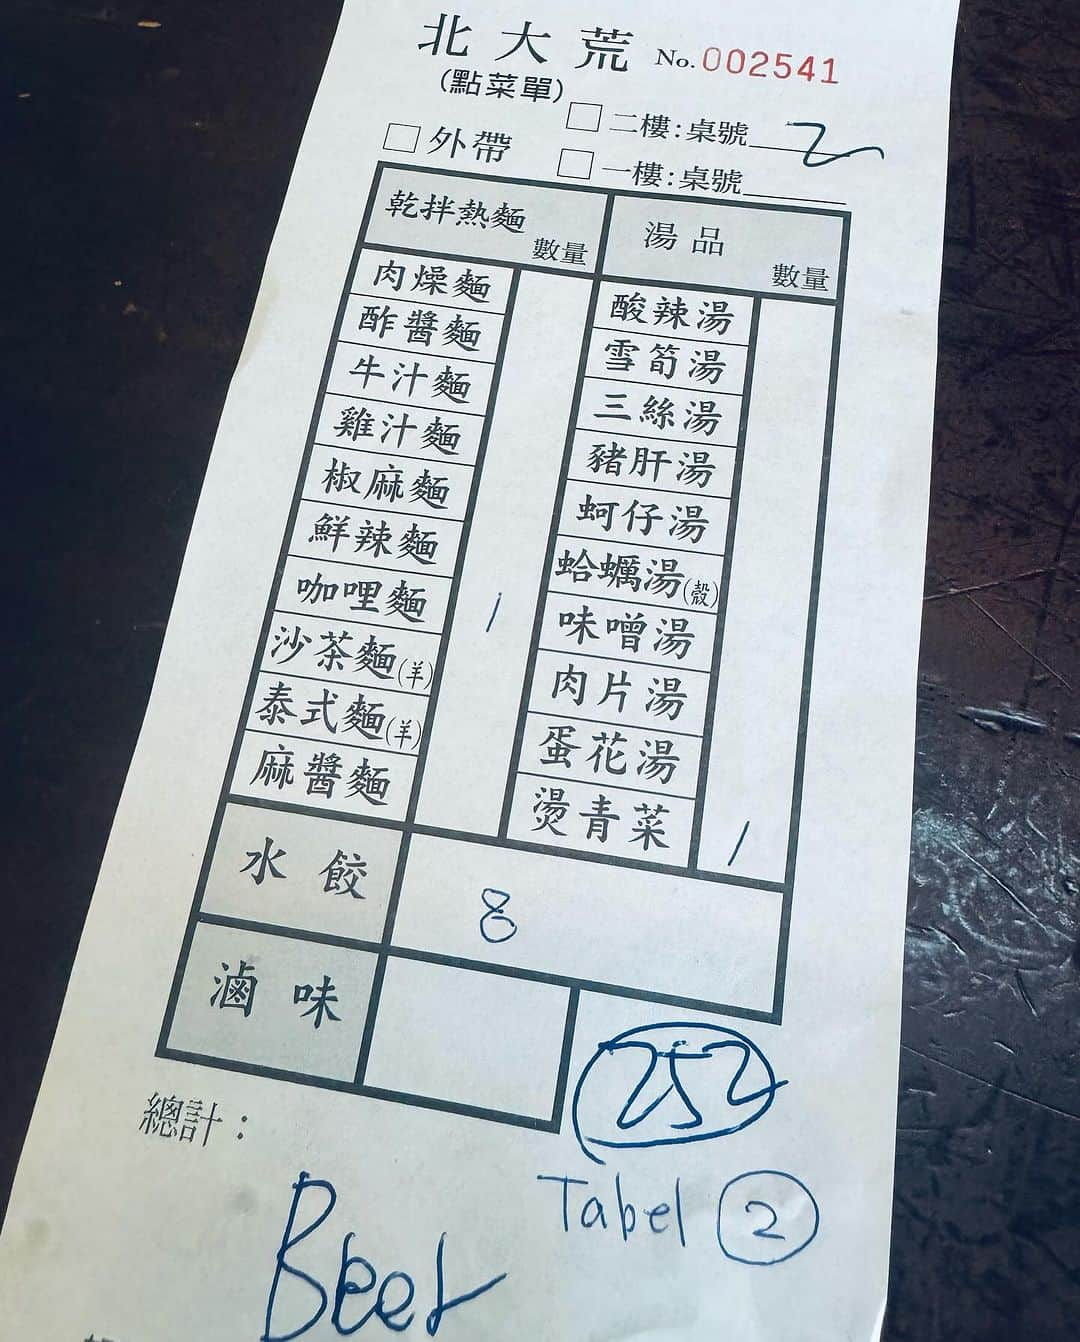 北大荒 No.002541
(點菜單)
二樓:桌號 2
外帶
一樓:桌號
乾拌熱麵 數量
湯品 數量
肉燥麵
酢醬麵
牛汁麵
雞汁麵
椒麻麵
鮮辣麵
咖哩麵 1
沙茶麵(羊)
泰式麵(羊)
麻醬麵
酸辣湯
雪筍湯
三絲湯
豬肝湯
蚵仔湯
蛤蠣湯(殼)
味噌湯
肉片湯
蛋花湯
燙青菜 1
水餃 8
滷味
252
總計:
Tabel 2